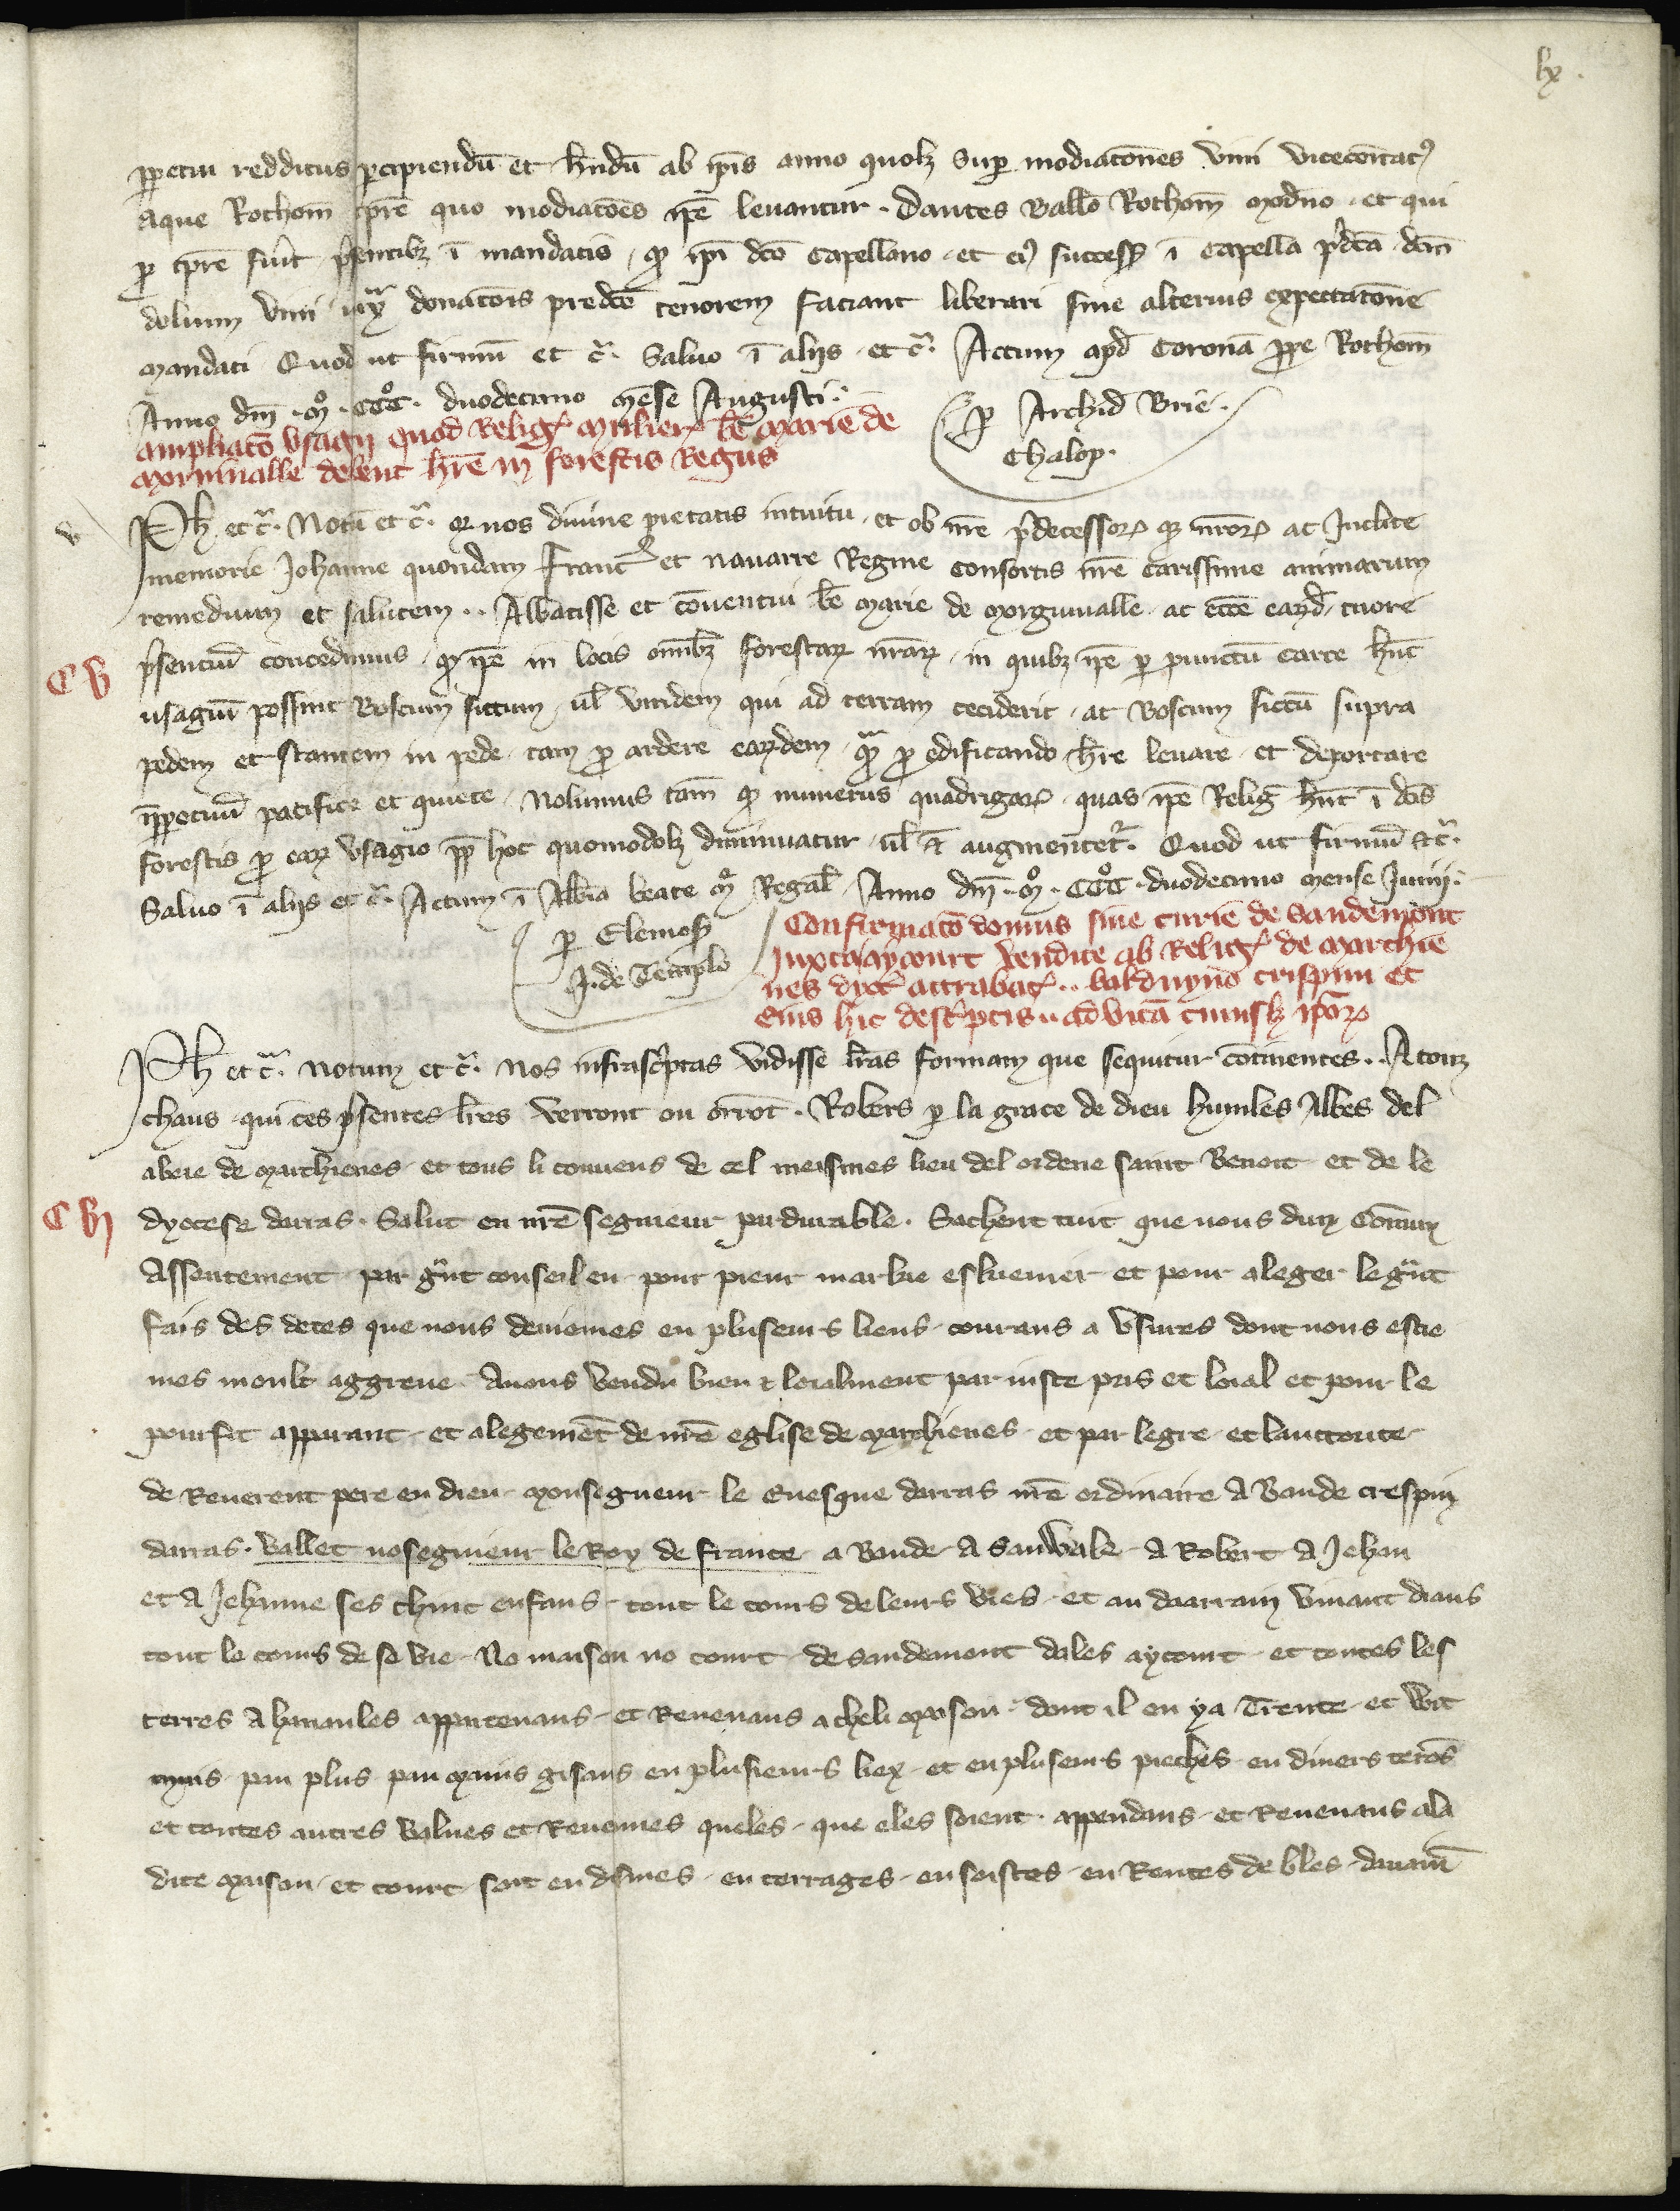 lx.
ppetui redditus pcipiendū et hndū ab ipīs anno quolz sup modiatōnes vini vicecōitatꝯ
aque Rothom̄ tpre quo modiatōes ipē levantur. Dantes Ballō Rothom̄ modno. et qui
p tpre fūit p̄sentibz ī mandatis, qͦ ipī dcō Capellano. et eiꝯ success̄ ī Capella p̄dcā dcm̄
dolium vini iuxͣ donatōis predcē tenorem faciant liberari sine alterius expectatōne
mandati Quod ut firmū et cͣ. Salvo ī aliis. et cͣ. Actum apd Coronā ppe Rothom̄
Anno dm̄. mͦ. CCCͦ. duodecimo mēse Augusti.
p Archid Brie.
Chalop.
Ampliatō vsagii quod Religꝭ mulierꝭ bē Marie de
Morguivalle debent hr̄e in forestis Regiis
Ph et cͣ. Notū et cͣ. qꝫ nos divine pietatis intuitu, et ob nrē p̄decessorꝝ qꝫ nr̄orꝝ ac Inclite
memorie Johanne quondam Francꝭ et Navarre Regine consortis nrē carissime animarum
remedium et salutem.. Abbatisse et cōventui bē Marie de Morguivalle. ac eccē earꝫd. tenore
p̄sentiū concedimus, qͦ ipē in locis omībz forestarꝝ nrārꝝ, in quibz ipē p punctū carte hn̄t
usagiū possint Boscum siccum, ul viridem qui ad terram ceciderit, ac Boscum siccū supra
pedem et stantem in pede, tam p ardere earꝫdem, qͣm p edificando hr̄e levare, et deportare
ippetuū pacifice et quiete. Nolumus tam̄ qͦ numerus quadrigarꝝ, quas ipē Relig hn̄t ī dcīs
forestis p earꝝ vsagio ppͭ hoc quomodolz diminuatur, ul ē augmentetͬ. Quod ut firmū etcͣ.
Salvo ī aliis et cͣ. Actum ī Abbīa beate Mͤ Regal. Anno dm̄. mͦ. CCCͦ. duodecimo mense Junii.
p Elemos̄
J. de Templo
C V
Confirmatō domus sive curie de Sandemont
Juxta aycourt vendite ab Religꝭ de Marchie
nes dyoc̄ attrabatꝭ.. balduyno crispini et
eius hic descͥptis.. ad vitā cuiuslz ipōrꝝ
Ph et cͣ. Notum et cͣ. Nos infrascͥptas vidisse lrās formam que sequitur cōtinentes.. A touz
chaus. qui ces p̄sentes lrēs verront ou orrōt. Robers p la grace de dieu humles Abbes del
abeie de Marchienes. et tous li couvens de cel meismes lieu del ordene saint Benoit. et de le
C VI
dyocese darras. Salut en nr̄e segnieur pardurable. Sachent tuit que nous dun Cōmun
Assentement par gͣnt conseil eu. pour pieur markie eskiewer. et pour aleger le gͣnt
fais des detes que nous deviemes en plusieurs lieus. courans a vsures dont nous estie
mes moult aggreve Avons vendu bien & loialment par iuste pris et loial et pour le
pourfit apparant. et alegemēt de nr̄e eglise de Marchienes. et par legre et lauctorite
de Reverent pere en dieu. Monsegneur le Evesque darras nr̄e ordinaire A Baude crespin
darras. Vallet nosegnieur le Roy de france. a Baude. A Sauwale. A Robert A Jehan
et A Jehanne ses chinc enfans. tout le cours de leurs vies. et au daarrain vivant dians
tout le cours de se vie. No maison no court. de Sandemont dales aycourt. et toutes les
terres A hanaules appartenans. et Revenans a cheli maison. dont il en ya Trente. et wit
muis. pau plus pau mains gisans en plusieurs liex. et en plusieurs pieches. en divers terōs
et toutes autres values et Revenues queles. que eles soient. appendans. et Revenans a la
dite maison. et court. soit en dismes. en terrages. en soistes. en Rentes de bles. davain̄